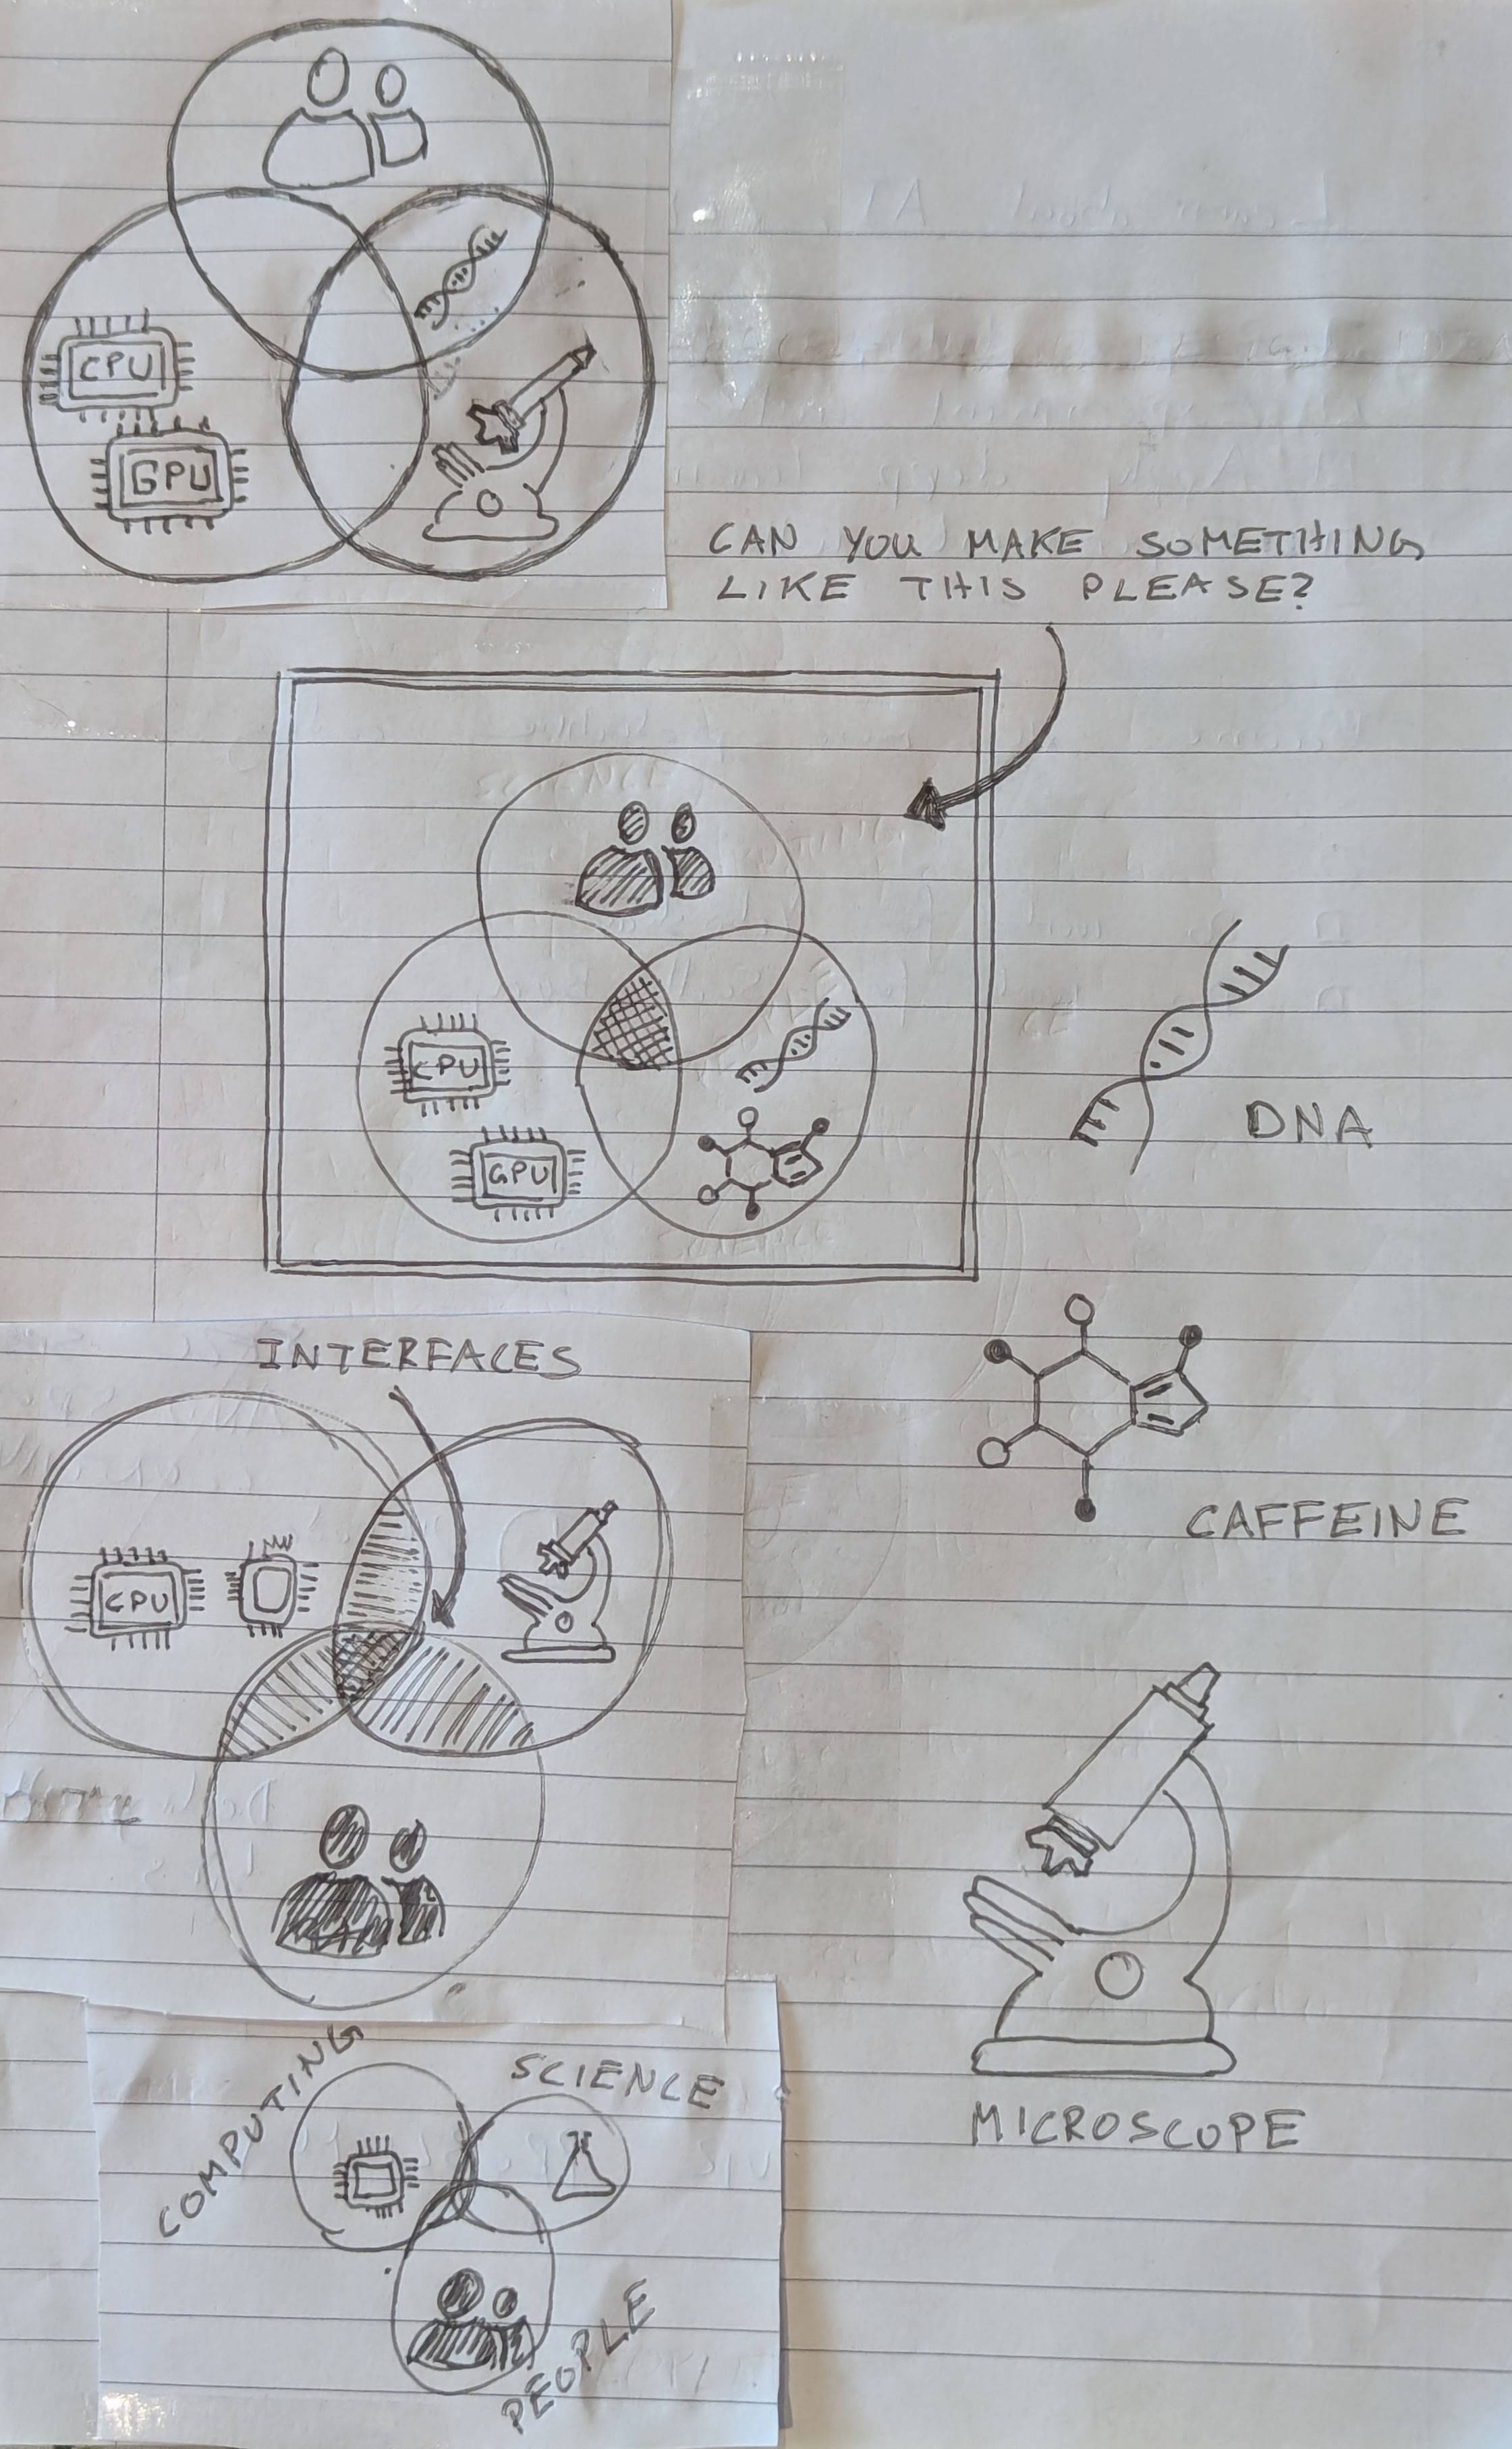 CPU
GPU
CAN YOU MAKE SOMETHING
LIKE THIS PLEASE?
CPU
GPU
DNA
INTERFACES
CPU
CAFFEINE
MICROSCOPE
COMPUTING
SCIENCE
PEOPLE